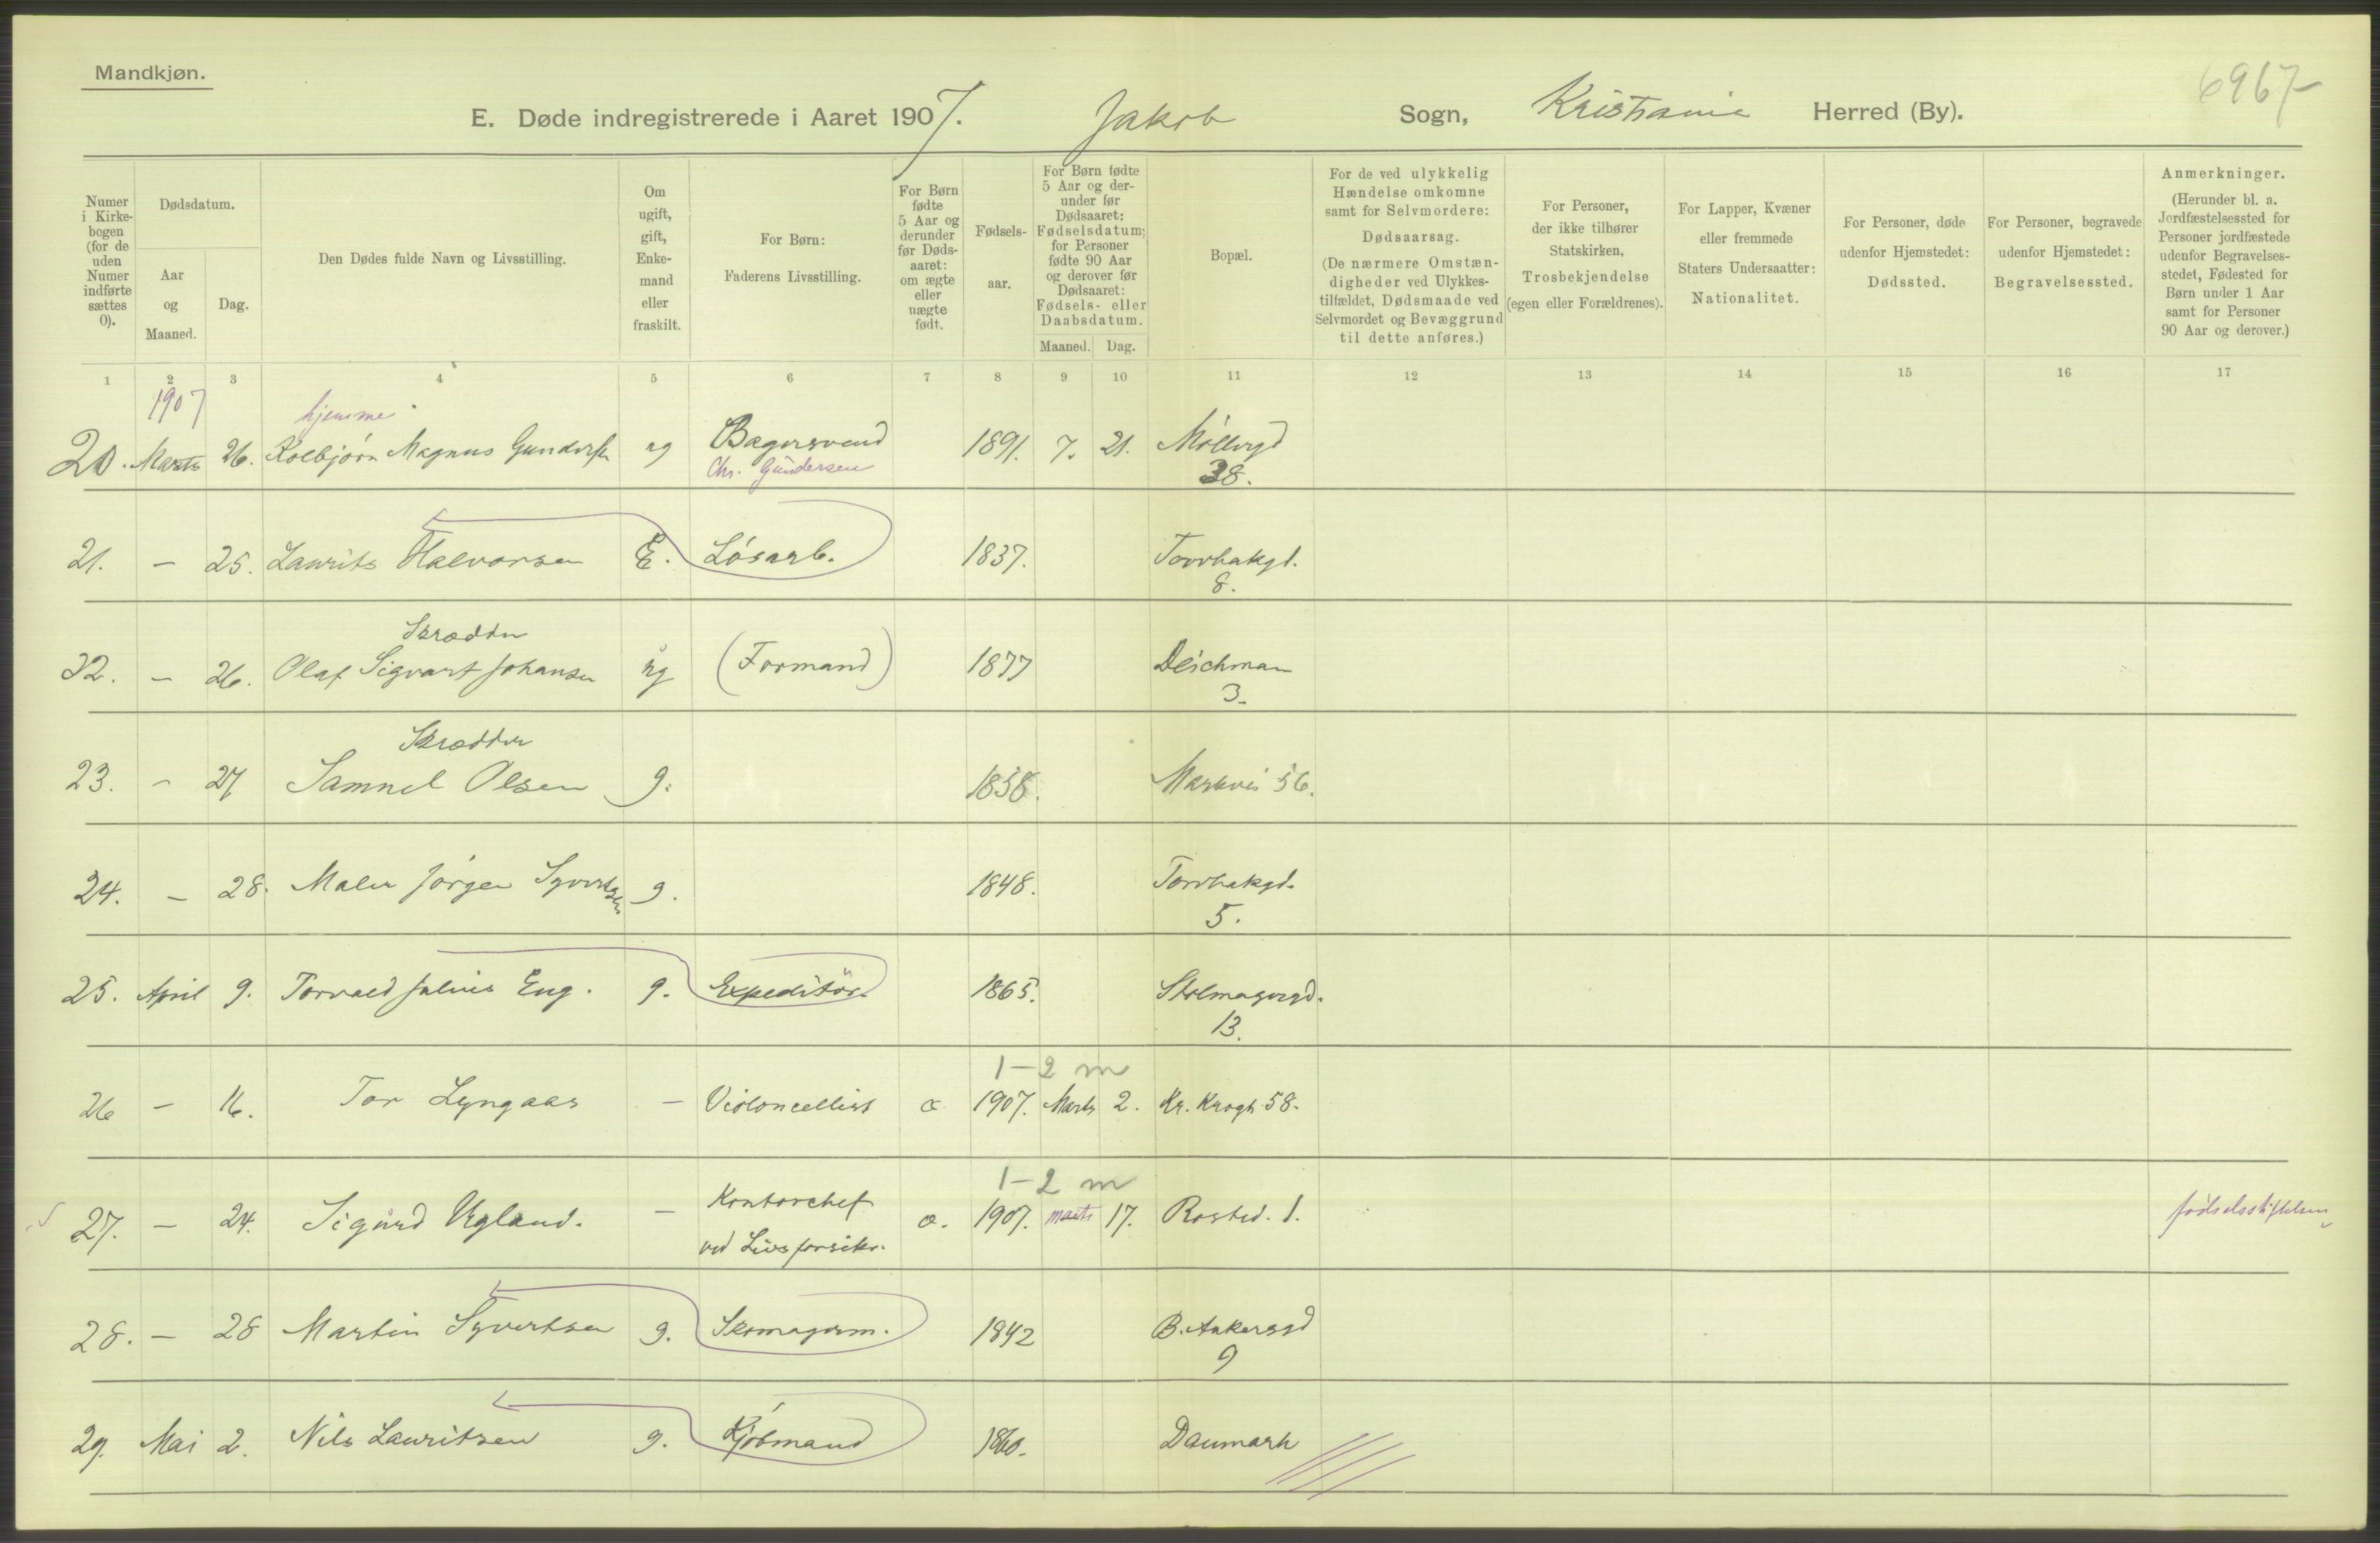 Mandkjøn.
6967
E. Døde indregistrerede i Aaret 1907. Jakob Sogn, Kristiania Herred (By).
Numer i Kirke-bogen (for de uden Numer indførte sættes 0).
Dødsdatum.
Aar og Maaned.
Dag.
Den Dødes fulde Navn og Livsstilling.
Om ugift, gift, Enke-mand eller fraskilt.
For Børn: Faderens Livsstilling.
For Børn fødte 5 Aar og derunder før Døds-aaret: om ægte eller uægte født.
Fødsels-aar.
For Børn fødte 5 Aar og der-under før Dødsaaret: Fødselsdatum; for Personer fødte 90 Aar og derover før Dødsaaret: Fødsels- eller Daabsdatum.
Maaned. Dag.
Bopæl.
For de ved ulykkelig Hændelse omkomne samt for Selvmordere: Dødsaarsag. (De nærmere Omstæn-digheder ved Ulykkes-tilfældet, Dødsmaade ved Selvmordet og Bevæggrund til dette anføres.)
For Personer, der ikke tilhører Statskirken, Trosbekjendelse (egen eller Forældrenes).
For Lapper, Kvæner eller fremmede Staters Undersaatter: Nationalitet.
For Personer, døde udenfor Hjemstedet: Dødssted.
For Personer, begravede udenfor Hjemstedet: Begravelsessted.
Anmerkninger. (Herunder bl. a. Jordfæstelsessted for Personer jordfæstede udenfor Begravelses-stedet, Fødested for Børn under 1 Aar samt for Personer 90 Aar og derover.)
1 2 3 4 5 6 7 8 9 10 11 12 13 14 15 16 17
1907 hjemme
20. Marts 26. Kolbjørn Magnus Gundersen ug Bagersvend 1891. 7. 21. Møllergd
Chr. Gundersen 38.
21. – 25. Laurits Halvorsen E. Løsarb. 1837. Torvbakgt.
8.
Skrædder
22. – 26. Olaf Sigvart Johansen ug (Formand) 1877 Deichman
3.
Skrædder
23. – 27 Samuel Olsen g. 1838. Markvei 56.
24. – 28. Maler Jørgen Syvertsen g. 1848. Torvbakgd.
5.
25. April 9. Torvald Julius Eng. g. Expeditör. 1865. Stolmagergd.
13.
1–2 m
26 – 16. Tor Lyngaas – Violoncellist æ 1907. Marts 2. Kr. Krogh 58.
1–2 m
27. – 24. Sigurd Ugland. – Kontorchef æ. 1907. marts 17. Rosted. 1. fødselsstiftelsen
ved Livsforsikr.
28. – 28 Martin Syvertsen g. Skomagerm. 1842 B. Ankersgd
9
29. Mai 2. Nils Lauritsen g. Kjøbmand 1860. Danmark